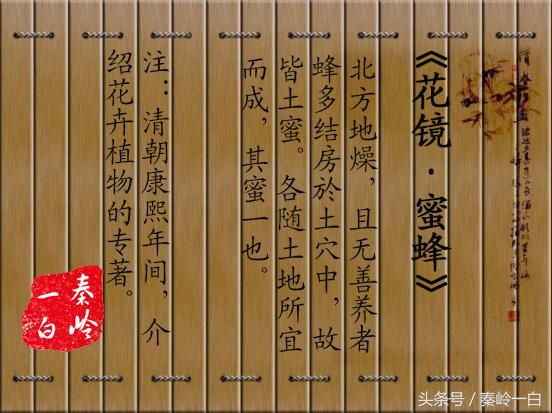 《花镜·蜜蜂》
北方地燥，且无善养者
蜂多结房於土穴中，故
皆土蜜。各随土地所宜
而成，其蜜一也。
注：清朝康熙年间，介
绍花卉植物的专著。
秦岭
一白
头条号 / 秦岭一白